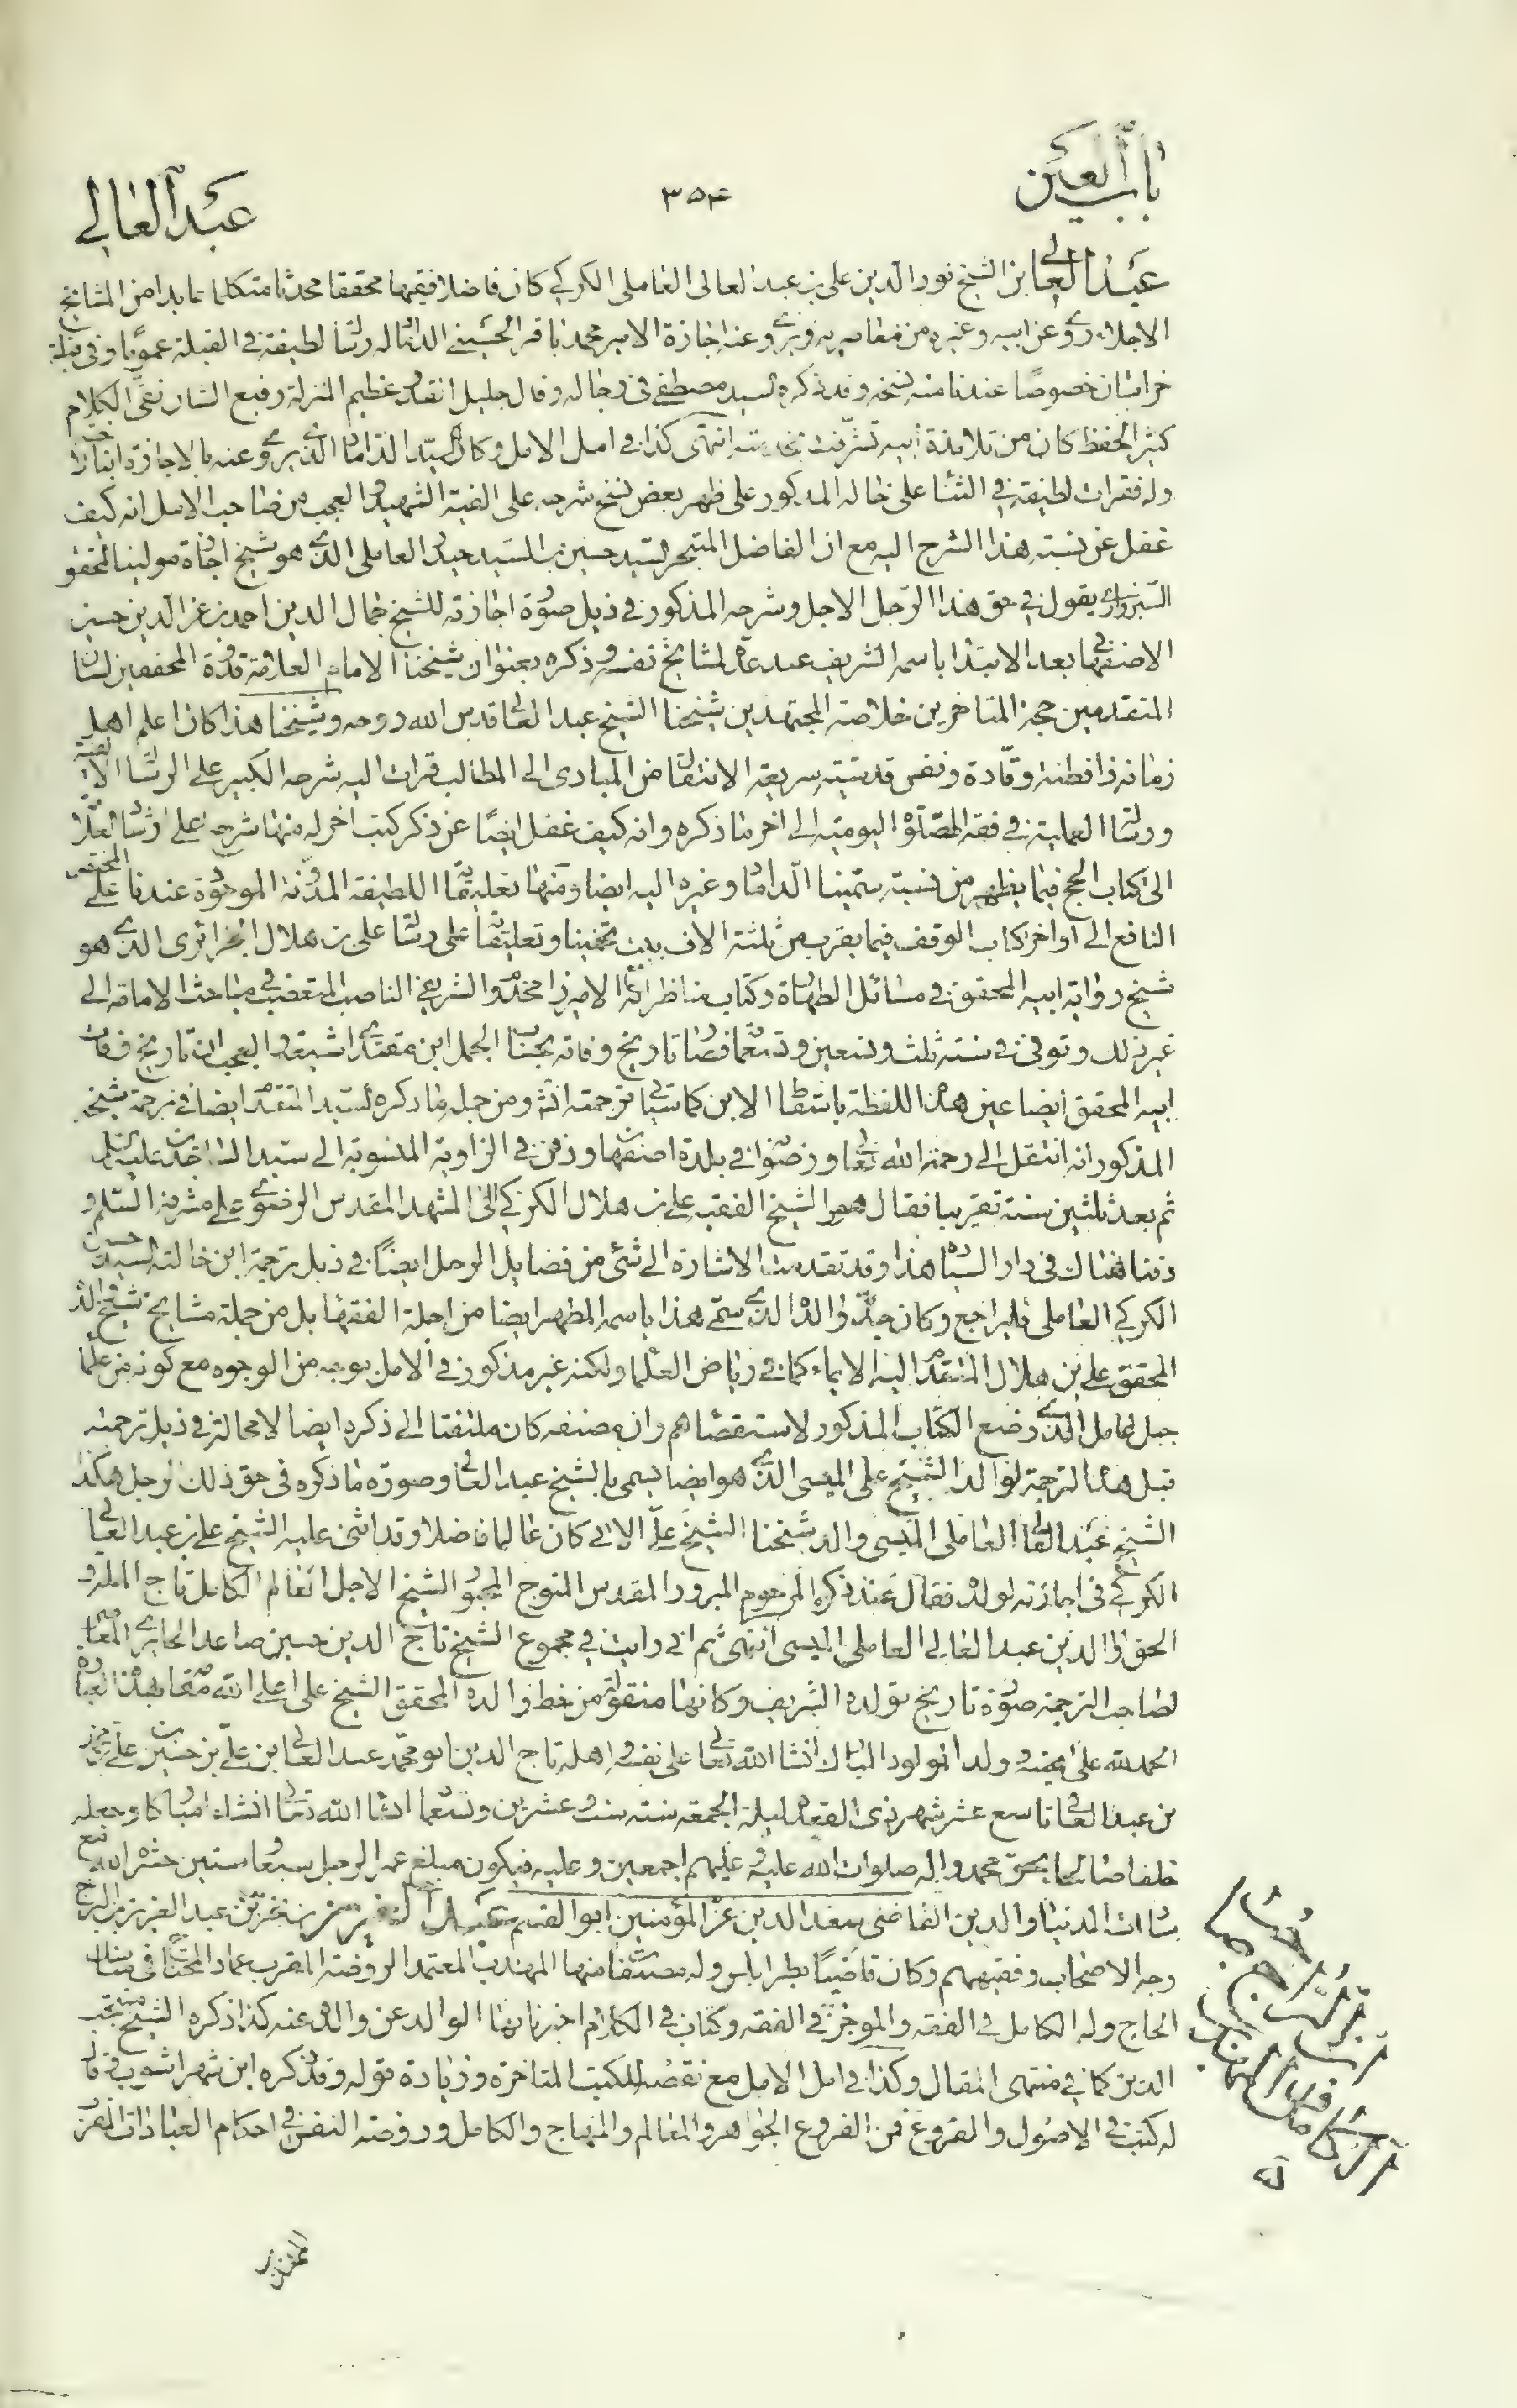 باب العين
٣٥۴
عبد العالي
عبد العالي ابن الشيخ نور الدين علي بن عبد العالى العاملى الكركي كان فاضلا فقيها محققا محدثا متكلما عابدا من المشايخ
الاجلاء روى عن ابيه وغيره من معاصريه ويروى عنه اجازة الامير محمد باقر الحسينى الداماد له رسالة لطيفة في القبلة عموما وفى قبلة
خراسان خصوصًا عندنا منه نسخة وقد ذكره السيد مصطفى فى رجاله وقال جليل القدر عظيم المنزلة رفيع الشان نقى الكلام
كثير الحفظ كان من تلامذة ابيه تشرفت بخدمته انتهى كذا في امل الامل وكان السيد الداماد الذي يروى عنه بالاجازة
وله فقرات لطيفة في الثناء على خاله المذكور على ظهر بعض نسخ شرحه على الفية الشهيد والعجب من صاحب الامل انه كيف
غفل عن نسبة هذا الشرح اليه مع ان الفاضل المتبحر السيد حسين بن السيد حيدر العاملى الذي هو شيخ اجازة مولينا المحقق
السبزواري يقول في حق هذا الرجل الاجل وشرحه المذكور في ذيل صورة اجازته للشيخ جمال الدين احمد بن عز الدين حسين
الاصفهاني بعد الابتداء باسمه الشريف عند عدّ مشايخ نفسه وذكره بعنوان شيخنا الامام العلامة قدوة المحققين لسان
المتقدمين حجة المتاخرين خلاصة المجتهدين شيخنا الشيخ عبد العالي قدس الله روحه وشيخنا هذا كان اعلم اهل
زمانه ذا فطنة وقّادة ونفس قدسيّة سريعة الانتقال من المبادى الى المطالب قرات اليه شرحه الكبير على الرسالة الالفية
ورسالته العملية في فقه الصلوة اليومية الى اخر ما ذكره وانه كيف غفل ايضًا عن ذكر كتب اخر له منها شرحه على ارشاد العلامة
الى كتاب الحج فيما يظهر من نسبة سميّنا الداماد وغيره اليه ايضا ومنها تعليقته اللطيفة المدونة الموجودة عندنا على المختصر
النافع الى اواخر كتاب الوقف فيما يقرب من ثلثة الاف بيت تخمينا وتعليقته على رسالة على بن هلال الجزائرى الذي هو
شيخ رواية ابيه المحقق في مسائل الطهارة وكتاب مناظراته مع الاميرزا مخدوم الشريفي الناصب المتعصب في مباحث الامامة الى
غير ذلك وتوفى في سنة ثلث وتسعين وتسعمائة فصار تاريخ وفاته بحساب الجمل ابن مقتداي شيعه والعجب ان تاريخ وفات
ابيه المحقق ايضا عين هذه اللفظة باسقاط الابن كما سياتي في ترجمته انشاء ومن جملة ما ذكره السيد المتقدم ايضا في ترجمة شيخه
المذكور انه انتقل الى رحمة الله تعالى ورضوانه في بلدة اصفهان ودفن في الزاوية المنسوبة الى سيد الساجدين عليه السلام
ثم بعد ثلثين سنة تقريبا نقل هو والشيخ الفقيه على بن هلال الكركي الى المشهد المقدس الرضوى على مشرفه السلم و
دفنا هناك فى دار السيادة هذا وقد تقدمت الاشارة الى شئ من فضايل الرجل ايضًا في ذيل ترجمة ابن خالته السيد حسين
الكركي العاملى فليراجع وكان جدّ والده الذي سمّى هذا باسمه المطهر ايضا من اجلة الفقهاء بل من جملة مشايخ شيخ والده
المحقق على بن هلال المتقدم اليه الايماء كما في رياض العلماء ولكنه غير مذكور في الامل بوجه من الوجوه مع كونه من علماء
جبل عامل الذي وضع الكتاب المذكور لاستقصائهم وان مصنفه كان ملتفتا الى ذكره ايضا لا محالة في ذيل ترجمته
قبل هذه الترجمة لوالد الشيخ على الميسى الذي هو ايضا يسمى بالشيخ عبد العالي وصورة ما ذكره فى حق ذلك الرجل هكذا
الشيخ عبد العالي العاملى الميسى والد شيخنا الشيخ على الاتى كان عالما فاضلا وقد اثنى عليه الشيخ على بن عبد العالي
الكركي فى اجازته لولده فقال عند ذكره المرحوم المبرور المقدس المتوج المحبور الشيخ الاجل العالم الكامل تاج الملة و
الحق والدين عبد العالى العاملى الميسى انتهى ثم انى رايت في مجموع الشيخ تاج الدين حسين صاعد الحايري المعاصر
لصاحب الترجمة صورة تاريخ تولده الشريف وكانها منقولة من خط والده المحقق الشيخ على اعلى الله مقامه بهذه العبارة
الحمد لله على نعمه ولد المولود المبارك انشاء الله تعالى على نفسه واهله تاج الدين ابو محمد عبد العالي بن على بن حسين بن على بن محمد
بن عبد العالي تاسع عشر شهر ذى القعدة ليلة الجمعة سنة ست وعشرين وتسعمائة انشاه الله تعالى انشاء مباركا وجعله
خلفا صالحا بحق محمد واله صلوات الله عليه وعليهم اجمعين وعليه فيكون مبلغ عمر الرجل سبعا وستين حشره الله مع
سادات الدنيا والدين القاضى سعد الدين عز المؤمنين ابو القسم عبد العزيز بن نحرير بن عبد العزيز بن البراج
وجه الاصحاب وفقيههم وكان قاضيًا بطرابلس وله مصنفات منها المهذب المعتمد الروضة المقرب عماد المحتاج في مناسك
الحاج وله الكامل في الفقه والموجز في الفقه وكتاب في الكلام اخبرنا بها الوالد عن والده عنه كذا ذكره الشيخ منتجب
الدين كما في منتهى المقال وكذا في امل الامل مع نقصه للكتب المتاخرة وزيادة قوله وقد ذكره ابن شهراشوب فقال
له كتب في الاصول والفروع فمن الفروع الجواهر والمعالم والمنهاج والكامل وروضة النفس في احكام العبادات الخمس